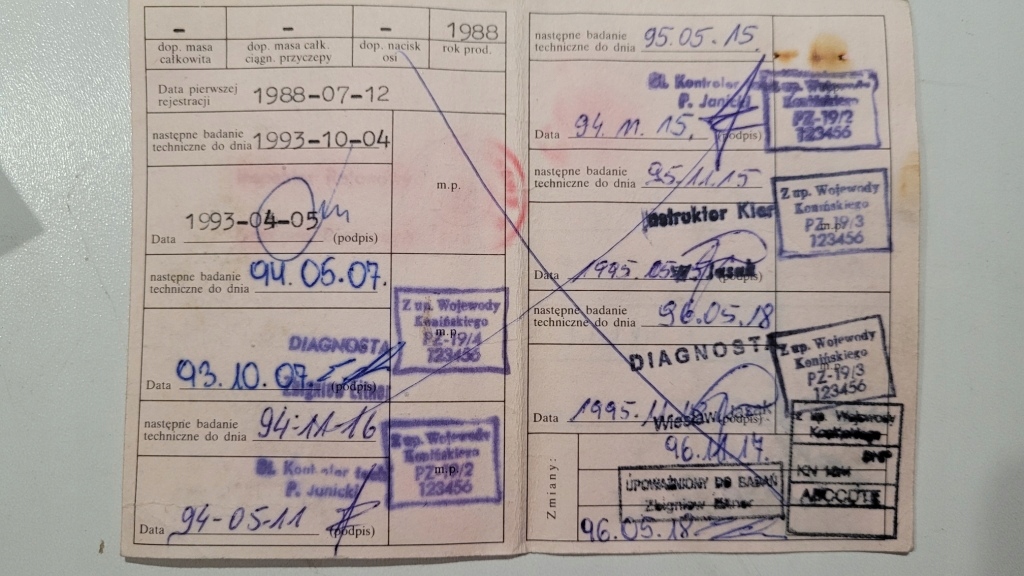 – – – 1988
dop. masa całkowita
dop. masa całk. ciągn. przyczepy
dop. nacisk osi
rok prod.
Data pierwszej rejestracji 1988-07-12
następne badanie techniczne do dnia 1993-10-04
m.p.
1993-04-05
Data (podpis)
następne badanie techniczne do dnia 94.05.07.
Z up. Wojewody
Konińskiego
m.p.
PZ-19/4
123456
DIAGNOSTA
Data 93.10.07. (podpis)
Zbigniew
następne badanie techniczne do dnia 94-11-16
Z up. Wojewody
Konińskiego
PZ /2
m.p.
123456
St. Kontroler
P. Janicki
Data 94-05-11 (podpis)
następne badanie techniczne do dnia 95.05.15.
St. Kontroler
P. Janicki
Z up. Wojewody
Konińskiego
PZ-19/2
123456
Data 94.11.15. (podpis)
następne badanie techniczne do dnia 95.11.15
Z up. Wojewody
Konińskiego
PZ-19/3
m.p.
123456
Instruktor
Data 1995.05 (podpis)
następne badanie techniczne do dnia 96.05.18
DIAGNOSTA
Z up. Wojewody
Konińskiego
PZ-19/3
123456
Data 1995.11 (podpis)
Wiesław
Zmiany:
96.11.17.
Z up. Wojewody
UPOWAŻNIONY DO BADAŃ
Zbigniew
96.05.18